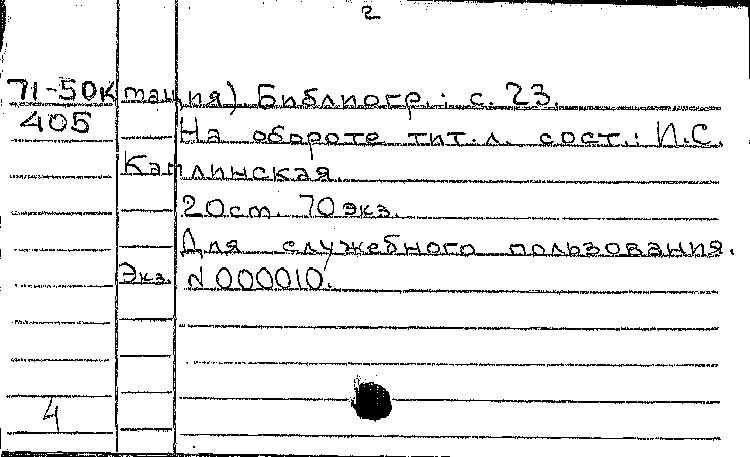 2
71-50к тация) Библиогр.: с. 23.
405 На обороте тит.л. сост.: И.С.
Каплинская.
20см. 70экз.
Для служебного пользования.
Экз. N000010.
4